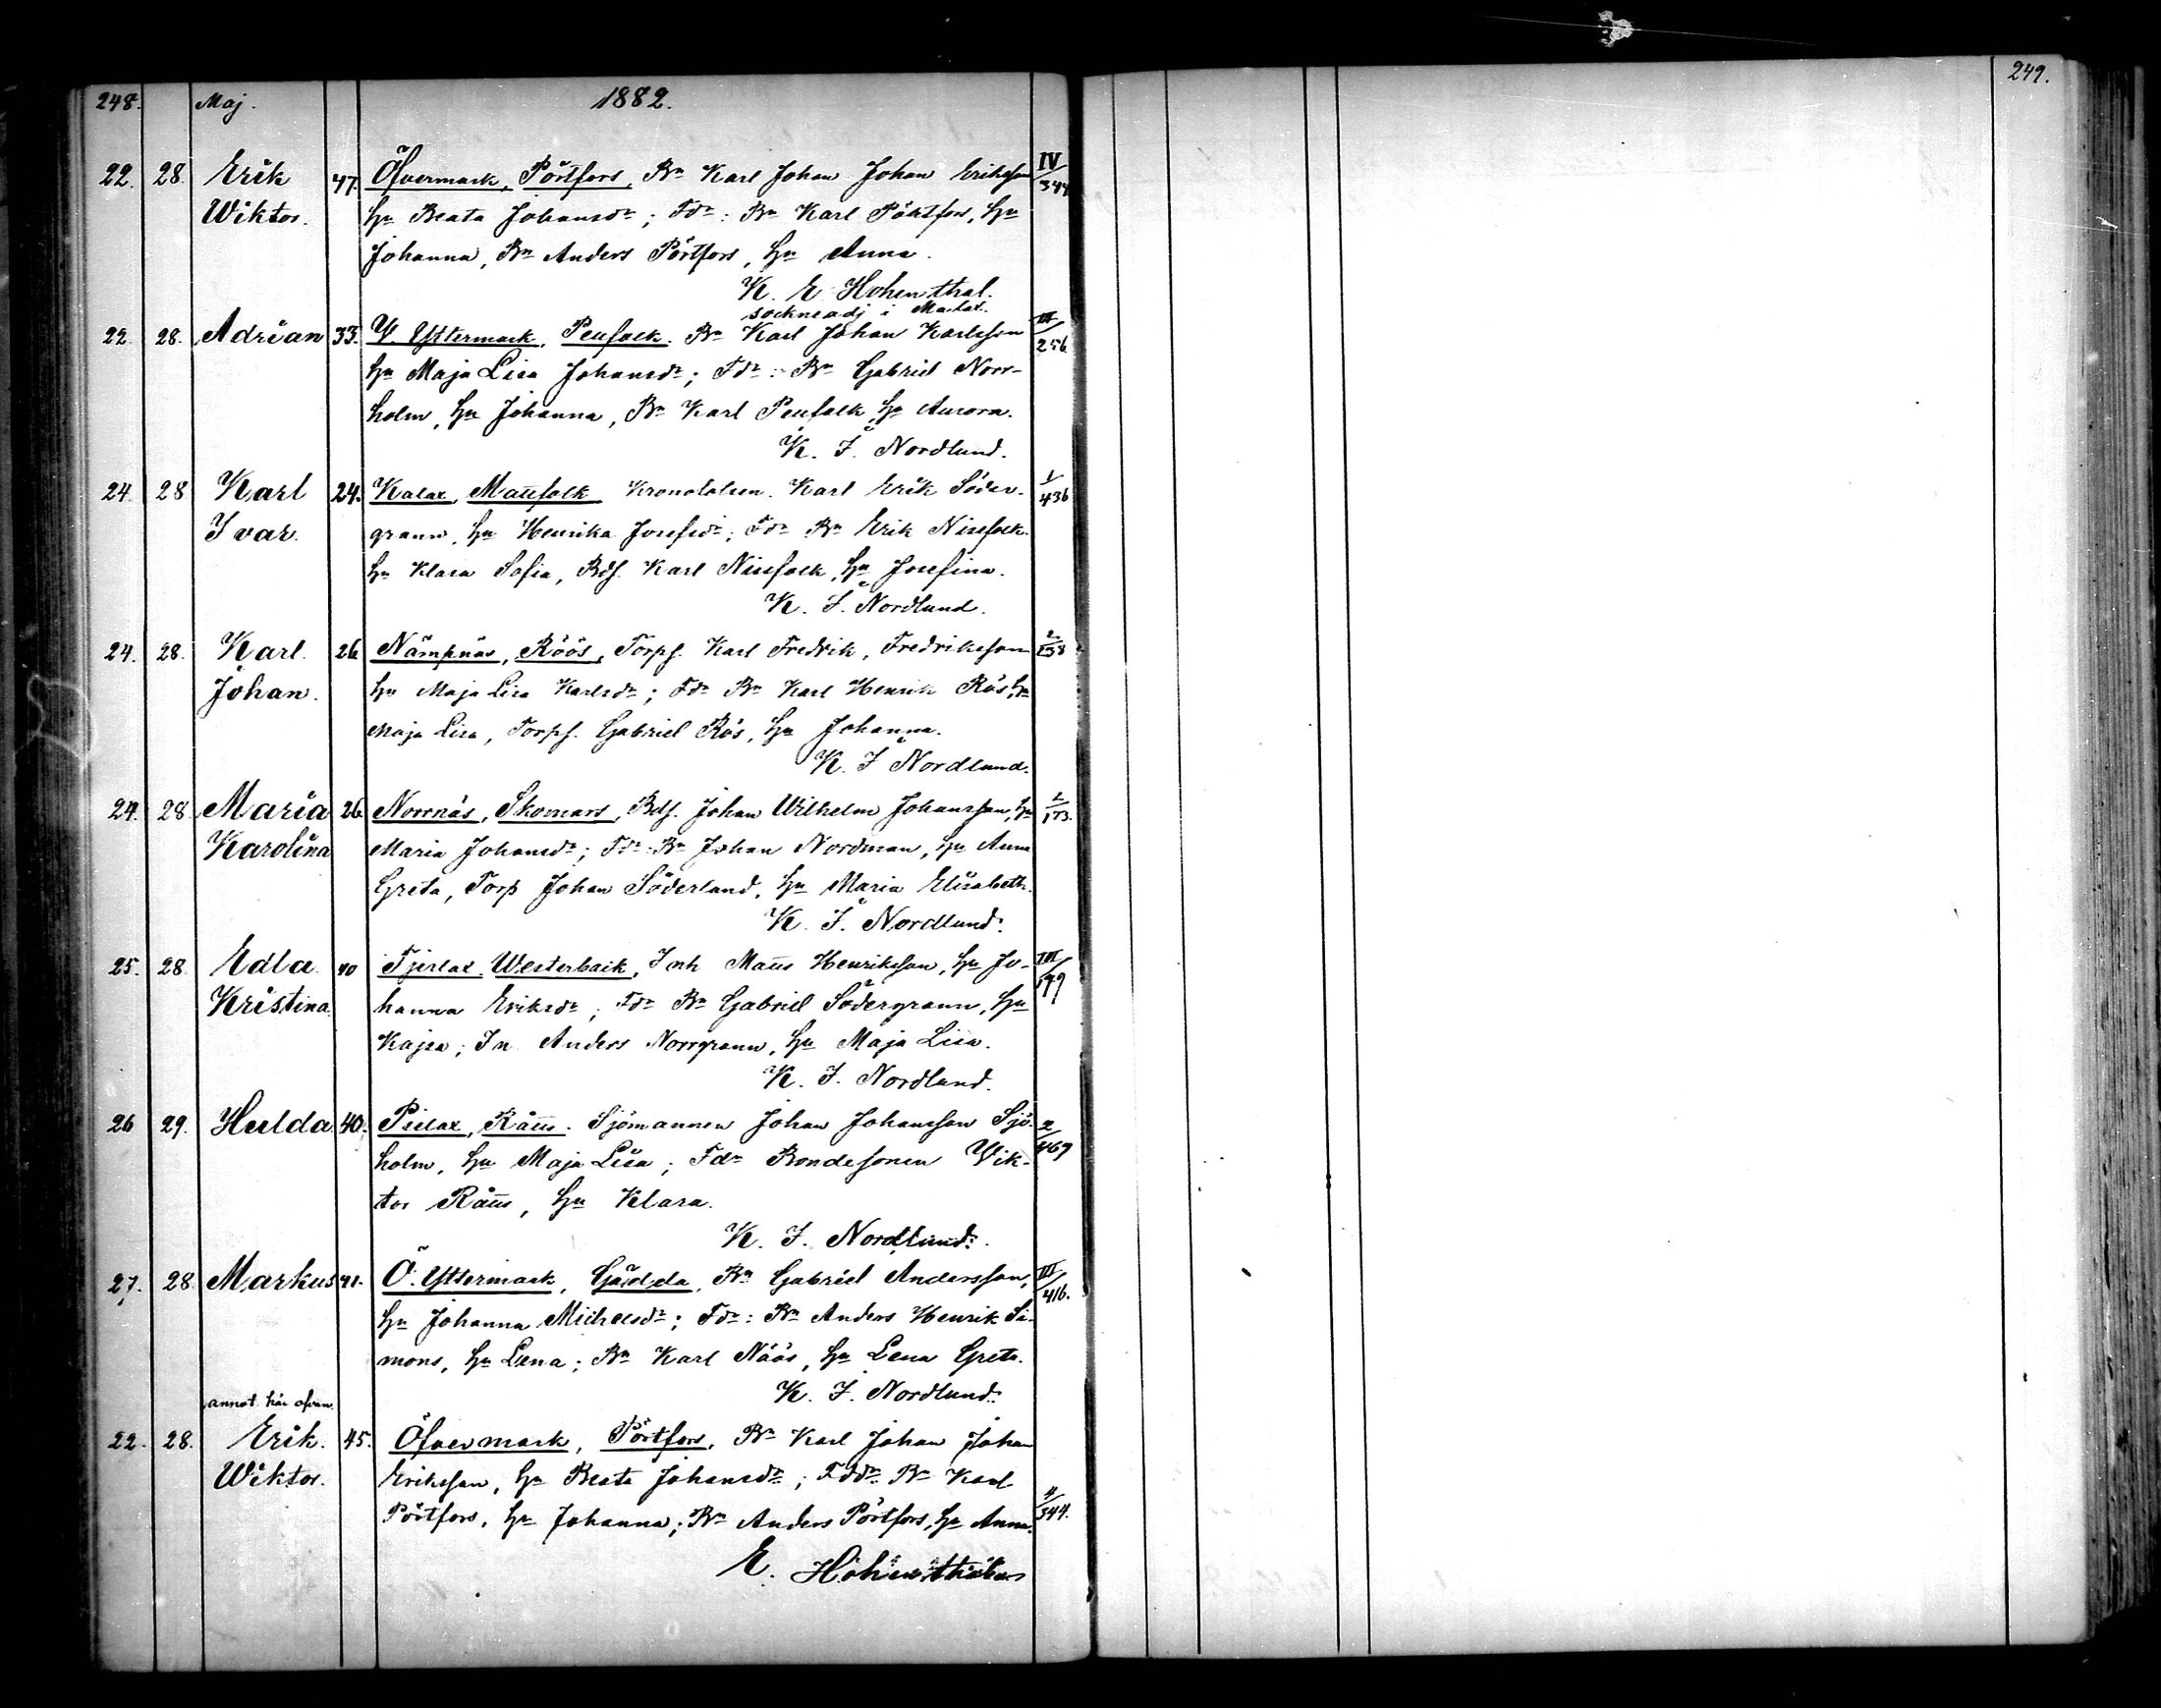 248. Maj. 1882.
22. 28. Erik 47. Öfvermark, Pörtfors, Bn Karl Johan Johan Eriksson IV/344
Wiktor. hu Beata Johansdr; Fdr: Bn Karl Pörtfors, hu
Johanna, Bn Anders Pörtfors, hu Anna.
K. E. Hohenthal.
sockneadj i Malax.
22. 28. Adrian 33. Y. Yttermark, Penfolk. Bn Karl Johan Karlsson III/256
hu Maja Lisa Johansdr; Fdr: Bn Gabriel Norr-
holm, hu Johanna, Bn Karl Penfolk, hu Aurora.
K. J. Nordlund.
24. 28 Karl 24. Kalax, Mannfolk Kronolotsen. Karl Erik Söder- 1/436
Ivar. grann, hu Henrika Josefsdr; Fdr Bn Erik Nissfolk.
hu Klara Sofia, Bdf. Karl Nissfolk, hu Josefina.
K. J. Nordlund.
24. 28. Karl 26 Nämpnäs, Röös, Torpf. Karl Fredrik, Fredriksson
Johan. hu Maja Lisa Karlsdr; Fdr Bn Karl Henrik Rös, hu
Maja Lisa, Torpf. Gabriel Rös, hu Johanna.
K. J Nordlund.
24. 28. Maria 26. Norrnäs, Skomars, Bdf. Johan Wilhelm Johansson, hu 2/173.
Karolina Maria Johansdr; Fdr: Bn Johan Nordman, hu Anna
Greta, Torp Johan Söderlund, hu Maria Elisabeth.
K. J. Nordlund.
25. 28. Edla 40 Tjerlax, Westerback, Inh Mans Henriksson, hu Jo- III/
Kristina. hanna Eriksdr; Fdr Bn Gabriel Södergrann, hu
Kajsa; In Anders Norrgrann, hu Maja Lisa.
K. J. Nordlund.
26 29. Hulda 40. Pielax, Råns. Sjömannen Johan Johansson Sjö- 2/469
holm, hu Maja Lisa; Fdr Bondesonen Wik-
tor Råns, hu Klara.
K. J. Nordlund.
27. 28. Markus 41. Ö. Yttermark, Gädda, Bn Gabriel Andersson, III/416.
hu Johanna Michelsdr; Fdr: Bn Anders Henrik Si-
mons, hu Lena; Bn Karl Nöös, hu Lena Greta.
K. J. Nordlund.
annot. här ofvan.
22. 28. Erik. 45. Öfvermark, Pörtfors, Bn Karl Johan Johan
Wiktor. Eriksson, hu Beata Johansdr; Fddr: Bn Karl
Pörtfors, hu Johanna; Bn Anders Pörtfors, hu Anna. 4/344.
E. Hohenthal
249.